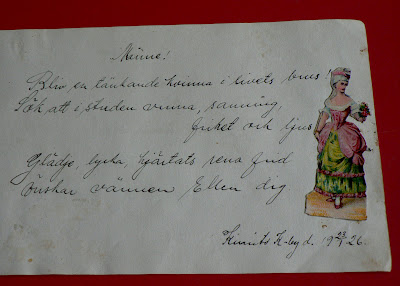 Minne!
Bliv en tänkande kvinna i livets brus
Sök att i striden vinna, sanning,
frihet och ljus
Glädje, lycka, hjärtats rena frid
Önskar vännen Ellen dig
Kimito K-by d. 23/1 1926.